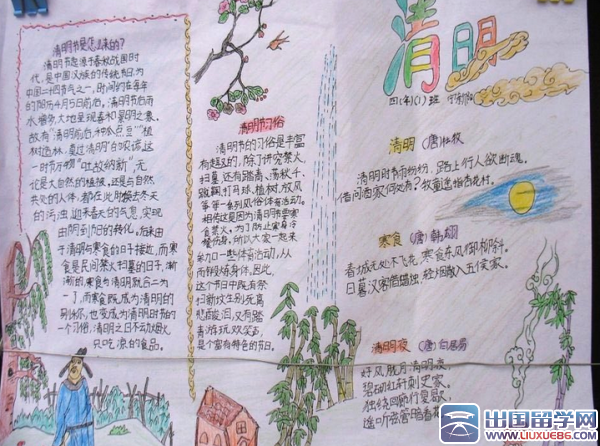 清明
四(年)(1)班
清明节是怎么来的?
清明节起源于春秋战国时
代,是中国汉族的传统节日,为
中国二十四节气之一,时间约在每年
的阳历4月5日前后。清明节后雨
水增多,大地呈现春和景明之象。
故有"清明前后,种瓜点豆""植
树造林,莫过清明"的农谚。这
一时节万物"吐故纳新",无
论是大自然的植被,还是与自然
共处的人体,都在此时换去冬天
的污浊,迎来春天的气息,实现
由阴到阳的转化。后来由
于清明与寒食的日子接近,而寒
食是民间禁火扫墓的日子,渐
渐的,寒食与清明就合二为
一了,而寒食既成为清明的
别称,也变成为清明时节的
一个习俗,清明之日不动烟火
只吃凉的食品。
清明节习俗
清明节的习俗是丰富
有趣的,除了讲究禁火、
扫墓,还有踏青、荡秋千、
蹴鞠、打马球、植树、放风
筝等一系列风俗体育活动。
相传这是因为清明节要寒
食禁火,为了防止寒食冷
餐伤身,所以大家一起来
参加一些体育活动,从
而锻炼身体,因此,
这个节日中既有祭
扫新坟生别死离
悲酸泪,又有踏
青游玩欢笑声,
是个富有特色的节日。
清明 (唐)杜牧
清明时节雨纷纷,路上行人欲断魂。
借问酒家何处有?牧童遥指杏花村。
寒食 (唐)韩翃
春城无处不飞花,寒食东风御柳斜。
日暮汉宫传蜡烛,轻烟散入五侯家。
清明夜 (唐)白居易
好风胧月清明夜,
碧砌红轩刺史家。
独绕回廊行复歇,
遥听弦管暗看花。
出国留学网
www.liuxue86.com